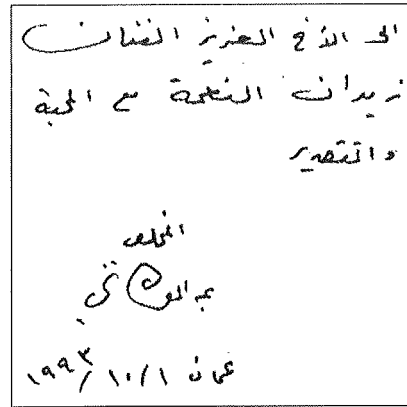 الى الأخ العزيز الفنان
زيدان النعمة مع المحبة
والتقدير
المخلص
عمان ١/١٠/١٩٩٣